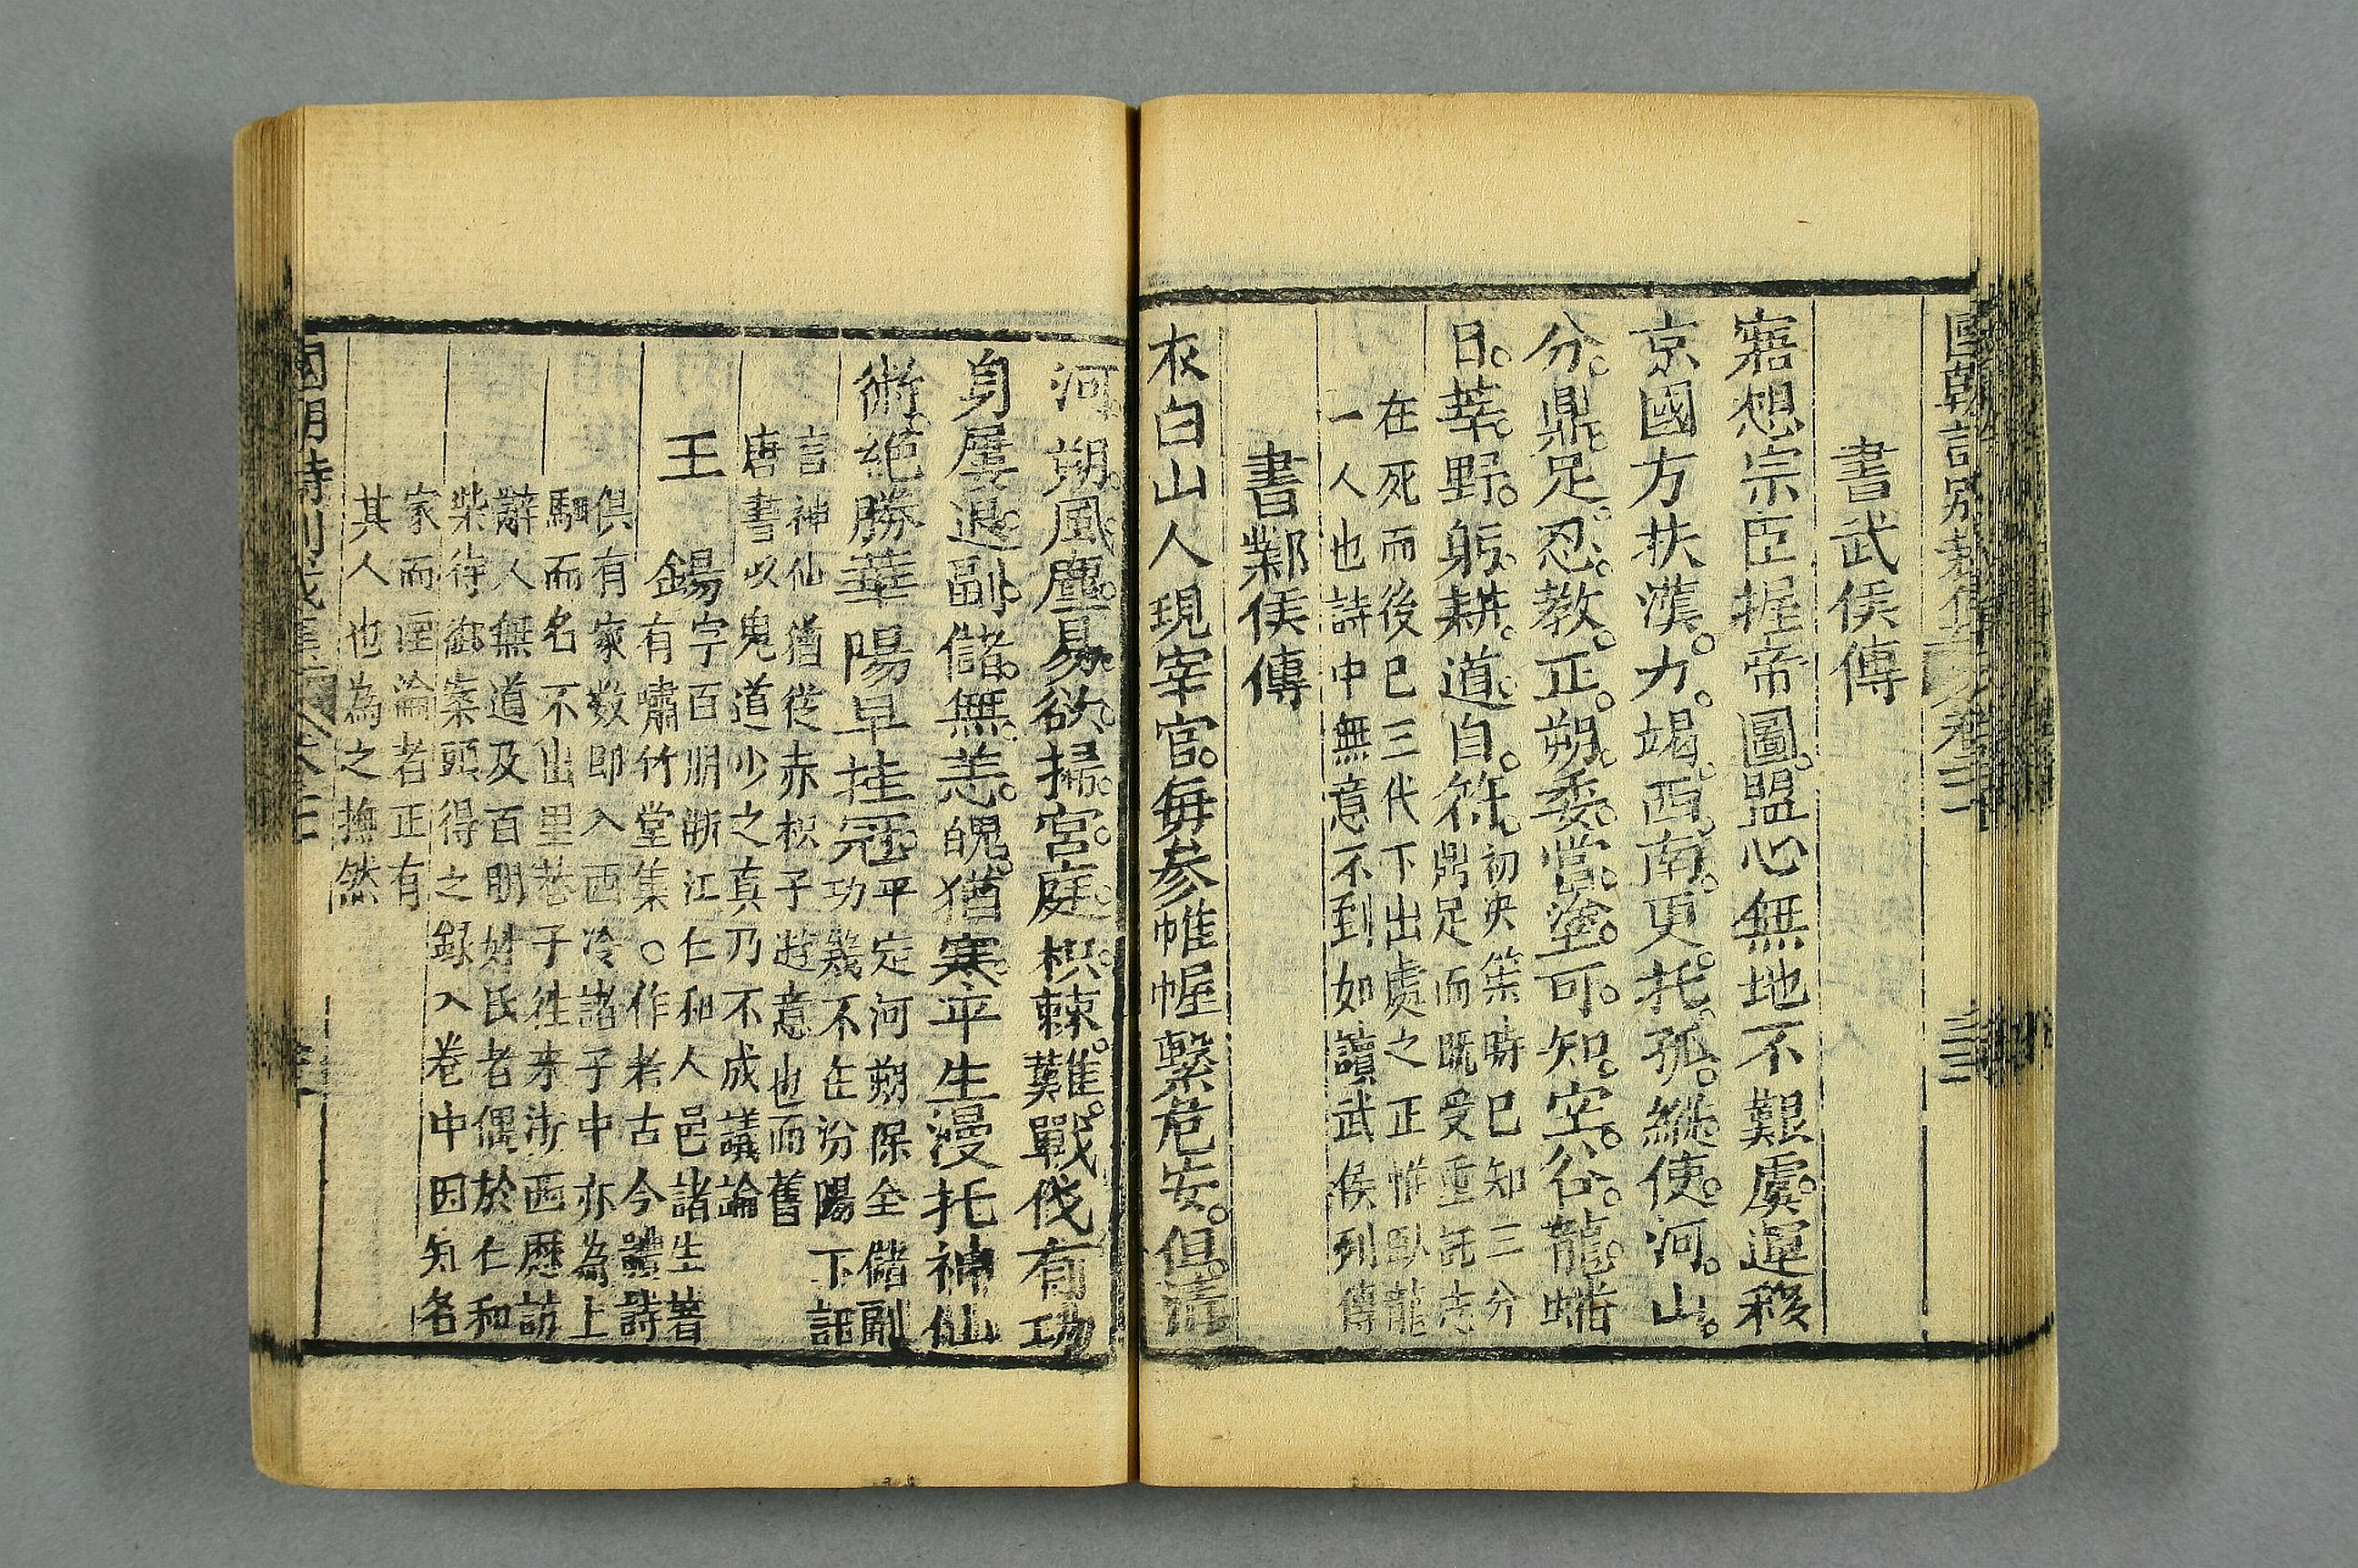 國朝詩別裁集 卷三
書武侯傳
寤想宗臣握帝圖盟心無地不艱虞運移
京國方扶漢力竭西南更托孤縱使河山
分鼎足忍教正朔委當塗可知空谷龍蟠
日莘野躬耕道自符
初決策時已知三分
鼎足而既受重託志
在死而後已三代下出處之正惟臥龍
一人也詩中無意不到如讀武侯列傳
書鄴侯傳
衣白山人現宰官每參帷幄繫危安但清
河朔風塵易欲掃宮庭枳棘難戰伐有功
身屢退副儲無恙魄猶寒平生漫托神仙
術絕勝華陽早挂冠
平定河朔保全儲副
功幾不在汾陽下託
言神仙猶從赤松子遊意也而舊
唐書以鬼道少之真乃不成議論
王錫
字百朋浙江仁和人邑諸生著
有嘯竹堂集○作者古今體詩
俱有家数即入西冷諸子中亦為上
駟而名不出里巷予往来浙西歷訪
辭人無道及百朋姓氏者偶於仁和
柴待御案頭得之録入卷中因知名
家而湮淪者正有
其人也為之撫然
國朝詩別裁集 卷三